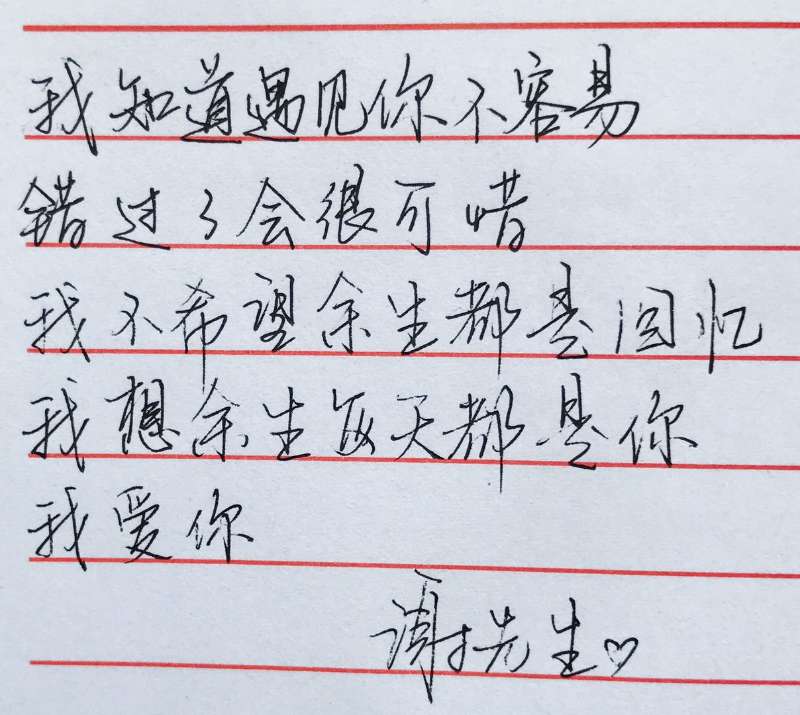 我知道遇见你不容易
错过了会很可惜
我不希望余生都是回忆
我想余生每天都是你
我爱你
谢先生♡